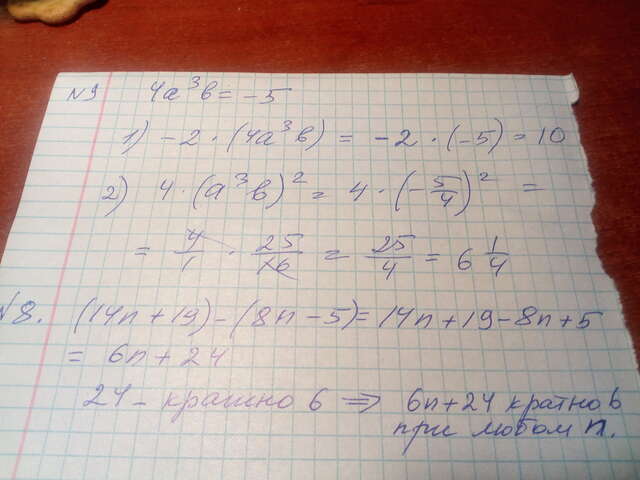 №9 4a³b = -5
1) -2 · (4a³b) = -2 · (-5) = 10
2) 4 · (a³b)² = 4 · (-5/4)² =
= 4/1 · 25/16 = 25/4 = 6 1/4
№8. (14n + 19) - (8n - 5) = 14n + 19 - 8n + 5
= 6n + 24
24 - кратно 6 ⇒ 6n + 24 кратно 6
при любом n.